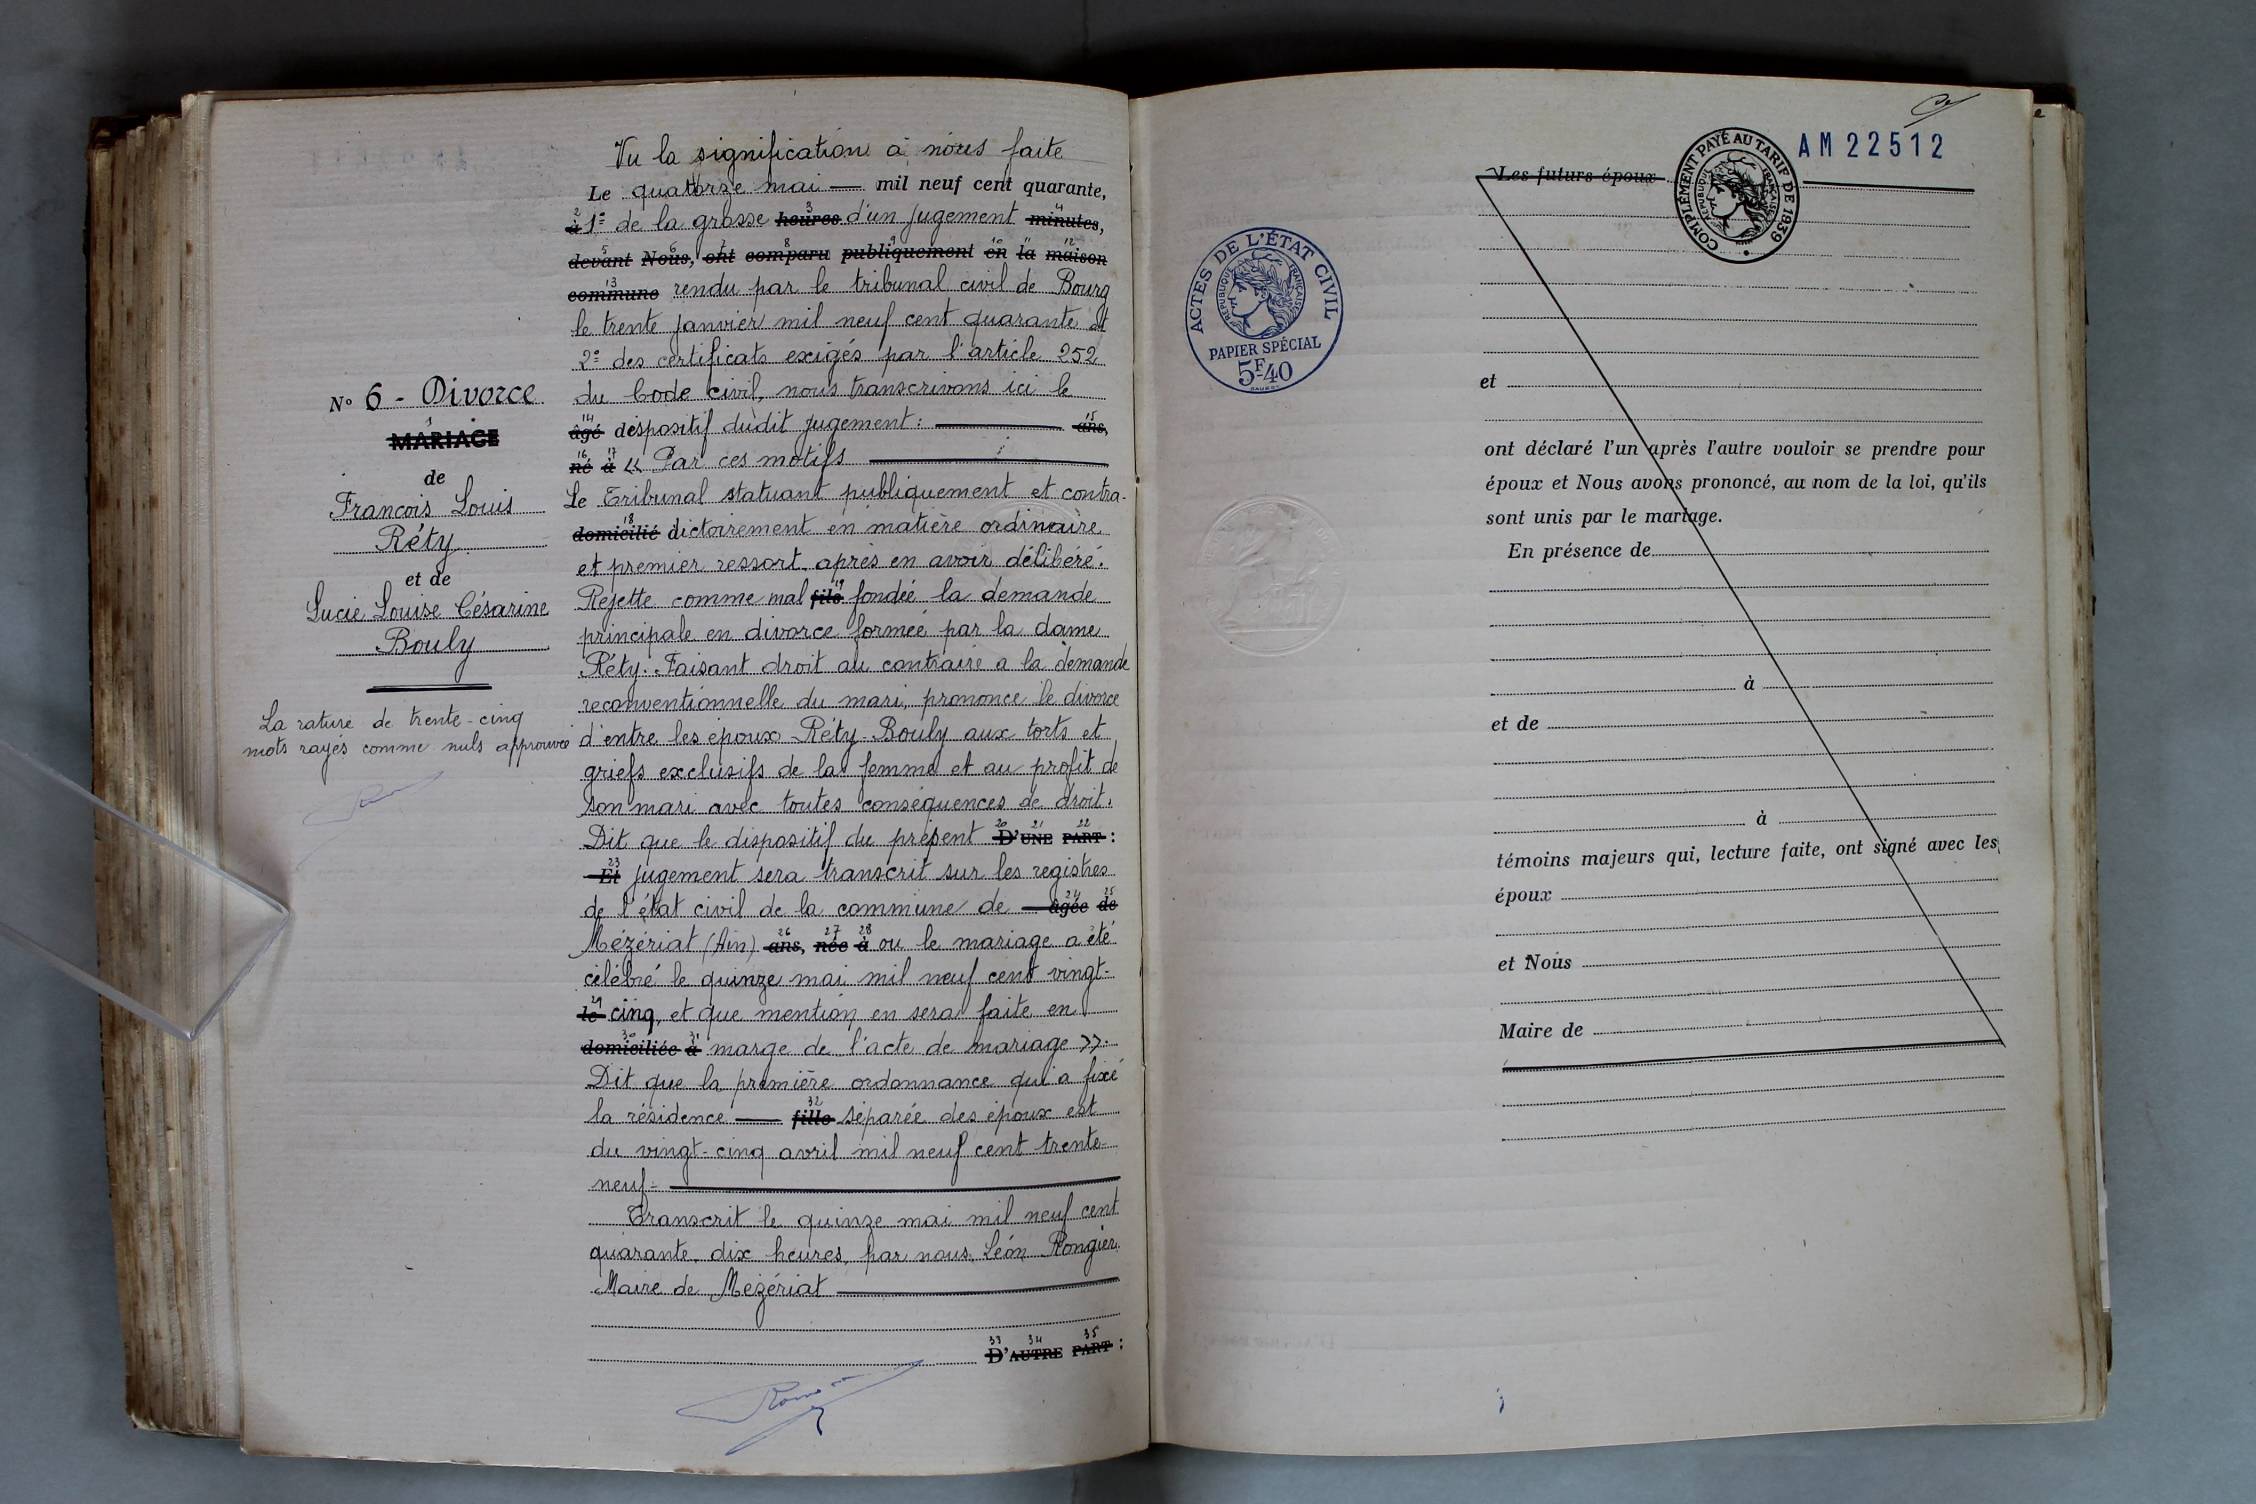 Vu la signification à nous faite
Le quatorze mai — mil neuf cent quarante,
à 1º de la grosse heures d'un jugement minutes,
devant Nous, ont comparu publiquement en la maison
commune rendu par le tribunal civil de Bourg
le trente janvier mil neuf cent quarante et
2º des certificats exigés par l'article 252
du Code civil, nous transcrivons ici le
âgé dispositif dudit jugement : ans,
né à « Par ces motifs
Le Tribunal statuant publiquement et contra-
domicilié dictoirement en matière ordinaire
et premier ressort après en avoir délibéré.
Rejette comme mal fils fondée la demande
principale en divorce formée par la dame
Réty. Faisant droit au contraire a la demande
reconventionnelle du mari, prononce le divorce
d'entre les époux Réty-Bouly aux torts et
griefs exclusifs de la femme et au profit de
son mari avec toutes conséquences de droit.
Dit que le dispositif du présent D'UNE PART :
Et jugement sera transcrit sur les registres
de l'état civil de la commune de — âgée de
Mézériat (Ain) ans, née à ou le mariage a été
célébré le quinze mai mil neuf cent vingt-
le cinq, et que mention en sera faite en
domiciliée à marge de l'acte de mariage ».
Dit que la première ordonnance qui a fixé
la résidence — fille séparée des époux est
du vingt-cinq avril mil neuf cent trente-
neuf-
Transcrit le quinze mai mil neuf cent
quarante, dix heures, par nous, Léon Rongier
Maire de Mézériat
D'AUTRE PART :
Nº 6 - Divorce
MARIAGE
de
François Louis
Réty
et de
Lucie Louise Césarine
Bouly
La rature de trente-cinq
mots rayés comme nuls approuvée
AM 22512
COMPLÉMENT PAYÉ AU TARIF DE 1939
RÉPUBLIQUE FRANÇAISE
ACTES DE L'ÉTAT CIVIL
RÉPUBLIQUE FRANÇAISE
PAPIER SPÉCIAL
5F40
Les futurs époux
et
ont déclaré l'un après l'autre vouloir se prendre pour
époux et Nous avons prononcé, au nom de la loi, qu'ils
sont unis par le mariage.
En présence de
à
et de
à
témoins majeurs qui, lecture faite, ont signé avec les
époux
et Nous
Maire de